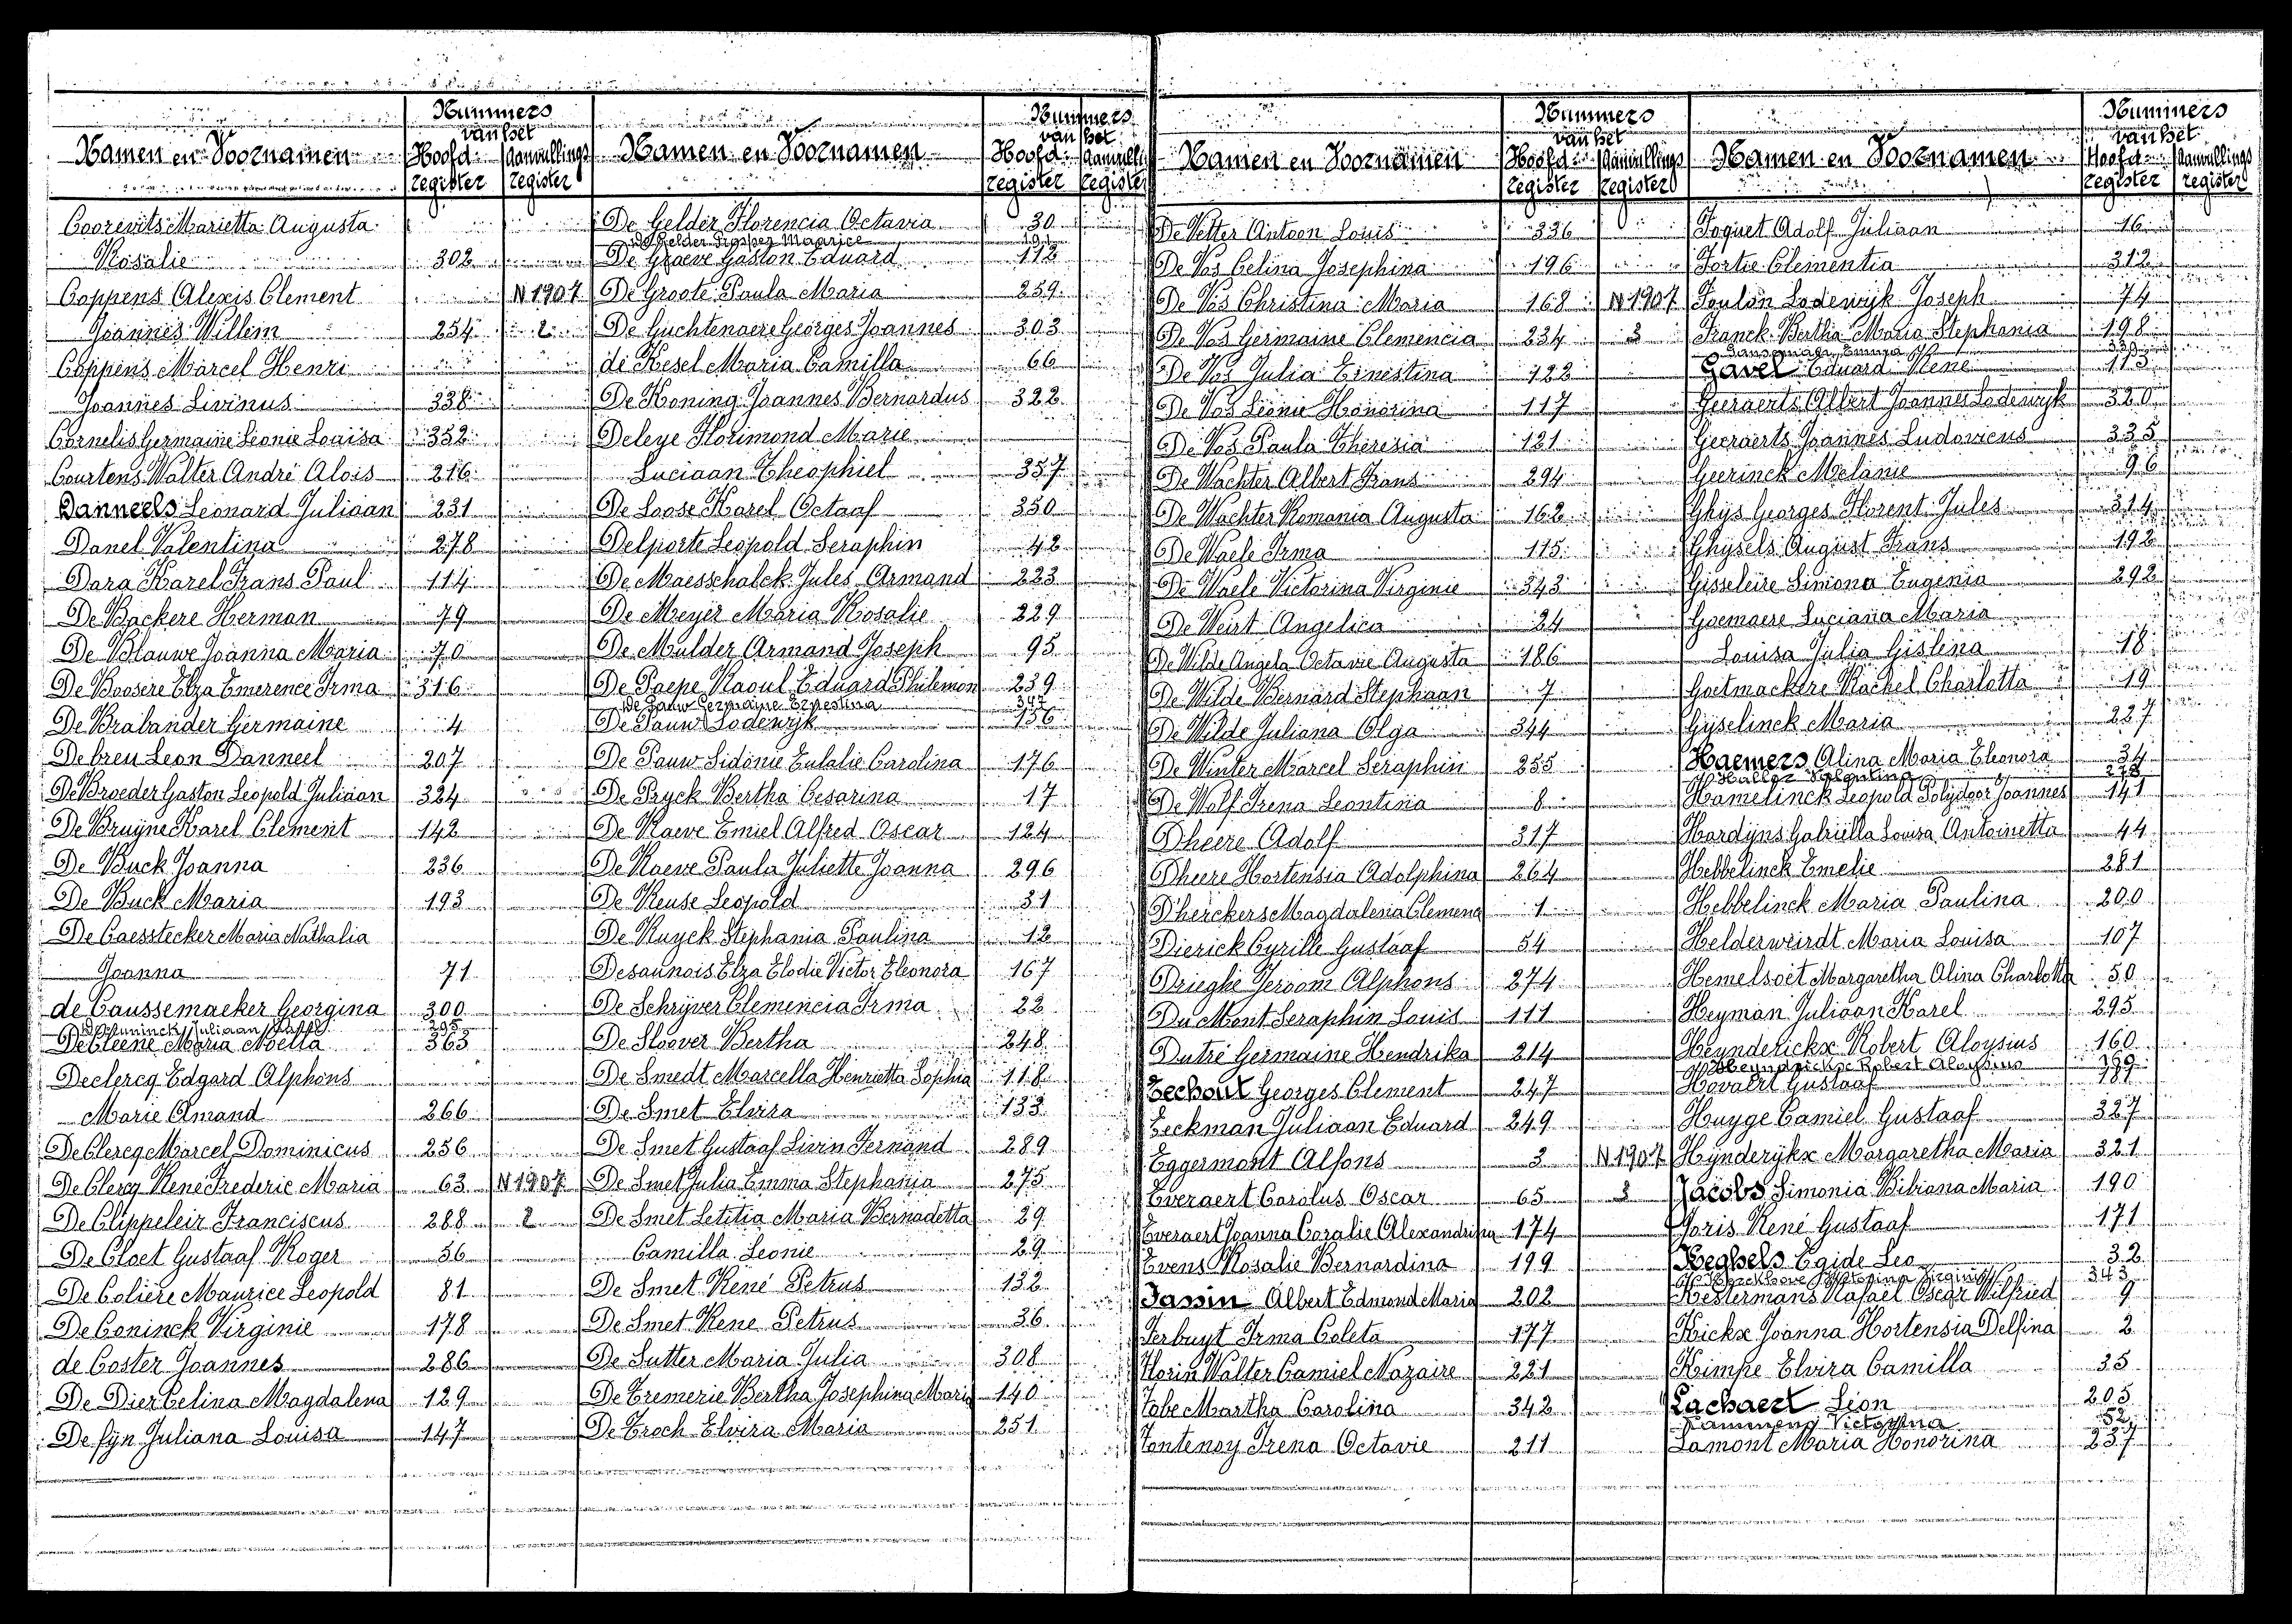 Nummers
van het
Namen en Voornamen Hoofd- Aanvullings
register register
Coorevits Marietta Augusta
Rosalie 302
Coppens Alexis Clement N 1907
Joannes Willem 254 2
Coppens Marcel Henri
Joannes Livinus 338
Cornelis Germaine Leonie Louisa 352
Courtens Walter André Alois 216
Danneels Leonard Juliaan 231
Danel Valentina 278
Dara Karel Frans Paul 114
De Backere Herman 79
De Blauwe Joanna Maria 70
De Boosere Elza Emerence Irma 316
De Brabander Germaine 4
Debreu Leon Danneel 207
De Broeder Gaston Leopold Juliaan 324
De Bruyne Karel Clement 142
De Buck Joanna 236
De Buck Maria 193
De Caesstecker Maria Nathalia
Joanna 71
de Caussemaeker Georgina 300
Juliaan 295
De Cleene Maria Noella 363
Declercq Edgard Alphons
Marie Amand 266
De Clercq Marcel Dominicus 256
De Clercq René Frederic Maria 63 N 1907
De Clippeleir Franciscus 288 2
De Cloet Gustaaf Roger 56
De Coliere Maurice Leopold 81
De Coninck Virginie 178
de Coster Joannes 286
De Dier Celina Magdalena 129
De fyn Juliana Louisa 147
Nummers
van het
Namen en Voornamen Hoofd- Aanvull
register register
De Gelder Florencia Octavia 30
De Gelder Prosper Maurice 191
De Graeve Gaston Eduard 112
De Groote Paula Maria 259
De Guchtenaere Georges Joannes 303
de Kesel Maria Camilla 66
De Koning Joannes Bernardus 322
Deleye Florimond Marie
Luciaan Theophiel 357
De Loose Karel Octaaf 350
Delporte Leopold Seraphin 42
De Maesschalck Jules Armand 223
De Meyer Maria Rosalie 229
De Mulder Armand Joseph 95
De Paepe Raoul Eduard Philemon 239
De Pauw Germaine Ernestina 347
De Pauw Lodewyk 156
De Pauw Sidonie Eulalie Carolina 176
De Pryck Bertha Cesarina 17
De Raeve Emiel Alfred Oscar 124
De Raeve Paula Juliette Joanna 296
De Reuse Leopold 31
De Ruyck Stephania Paulina 12
Desaunois Elza Elodie Victor Eleonora 167
De Schryver Clemencia Irma 22
De Sloover Bertha 248
De Smedt Marcella Henrietta Sophia 118
De Smet Elvira 133
De Smet Gustaaf Livin Fernand 289
De Smet Julia Emma Stephania 275
De Smet Letitia Maria Bernadetta 29
Camilla Leonie 29
De Smet René Petrus 132
De Smet Rene Petrus 36
De Sutter Maria Julia 308
De Tremerie Bertha Josephina Maria 140
De Troch Elvira Maria 251
Nummers
van het
Namen en Voornamen Hoofd- Aanvullings
register register
De Vetter Antoon Louis 336
De Vos Celina Josephina 196
De Vos Christina Maria 168 N 1907
De Vos Germaine Clemencia 234 3
De Vos Julia Ernestina 122
De Vos Leonie Honorina 117
De Vos Paula Theresia 121
De Wachter Albert Frans 294
De Wachter Romania Augusta 162
De Waele Irma 115
De Waele Victorina Virginie 343
De Weirt Angelica 24
De Wilde Angela Octavie Augusta 186
De Wilde Bernard Stephaan 7
De Wilde Juliana Olga 344
De Winter Marcel Seraphin 255
De Wolf Irena Leontina 8
Dheere Adolf 317
Dheere Hortensia Adolphina 264
D'herckers Magdalena Clemena 1
Dierick Cyrille Gustaaf 54
Drieghe Jeroom Alphons 274
Du Mont Seraphin Louis 111
Dutré Germaine Hendrika 214
Eechout Georges Clement 247
Eeckman Juliaan Eduard 249
Eggermont Alfons 3 N 1907
Everaert Carolus Oscar 65 3
Everaert Joanna Coralie Alexandrina 174
Evens Rosalie Bernardina 199
Fassin Albert Edmond Maria 202
Ferbuyt Irma Coleta 177
Florin Walter Camiel Nazaire 221
Fobe Martha Carolina 342
Fontenoy Irena Octavie 211
Nummers
van het
Namen en Voornamen Hoofd- Aanvullings
register register
Foquet Adolf Juliaan 16
Fortie Clementia 312
Foulon Lodewyk Joseph 74
Franck Bertha Maria Stephania 198
Emma 339
Gavel Eduard René 113
Geeraerts Albert Joannes Lodewyk 320
Geeraerts Joannes Ludovicus 335
Geerinck Melanie 96
Ghys Georges Florent Jules 314
Ghysels August Frans 192
Gisseleire Simona Eugenia 292
Goemaere Luciana Maria
Louisa Julia Gislena 18
Goetmackere Rachel Charlotta 19
Gyselinck Maria 227
Haemers Alina Maria Eleonora 34
Haller Valentina 278
Hamelinck Leopold Polydoor Joannes 141
Hardyns Gabriella Louisa Antoinetta 44
Hebbelinck Emelie 281
Hebbelinck Maria Paulina 200
Helderweirdt Maria Louisa 107
Hemelsoet Margaretha Alina Charlotta 50
Heyman Juliaan Karel 295
Heynderickx Robert Aloysius 160
Heyndrickx Robert Aloysius
Hovaert Gustaaf 187
Huyge Camiel Gustaaf 327
Hynderykx Margaretha Maria 321
Jacobs Simonia Bibiana Maria 190
Joris René Gustaaf 171
Keghels Egide Leo 32
Victorina Virginie 343
Kestermans Rafael Oscar Wilfried 9
Kickx Joanna Hortensia Delfina 2
Kimpe Elvira Camilla 35
Lachaert Leon 205
Lammens Victorina 52
Lamont Maria Honorina 237